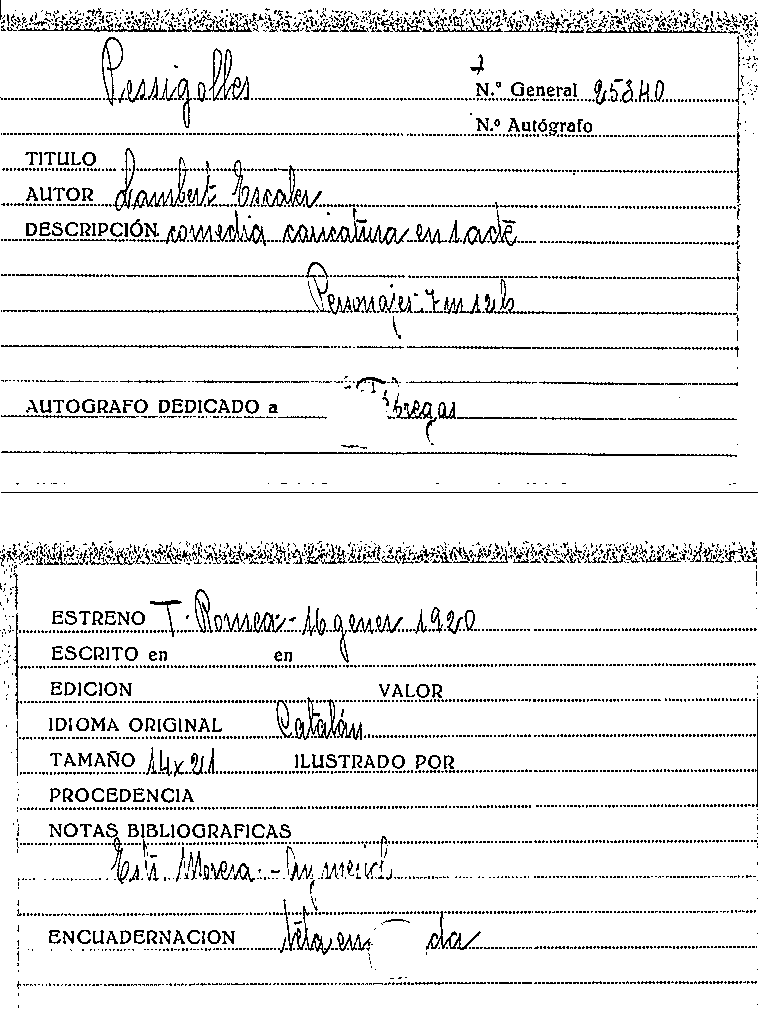 Pessigolles
N.º General 25340
N.º Autógrafo
TITULO
AUTOR Lambert Escaler
DESCRIPCIÓN comedia caricatura en 1 acte
Personajes: 7 m 12 b
AUTOGRAFO DEDICADO a
ESTRENO T. Romea - 16 gener 1920
ESCRITO en en
EDICION VALOR
IDIOMA ORIGINAL Catalán
TAMAÑO 14 x 21 ILUSTRADO POR
PROCEDENCIA
NOTAS BIBLIOGRAFICAS
Morera.-
ENCUADERNACION tela en da